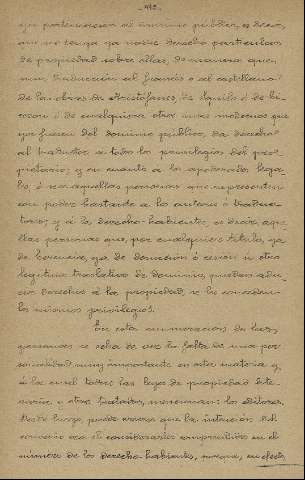 que pertenezcan al dominio público, es decir,
que no tenga ya nadie derecho particular
de propiedad sobre ellas. De manera que,
una traducción al francés o al castellano
de las obras de Aristófanes, de Esquilo ó de
ó de cualquiera otro más moderno que
ya fuesen del dominio público, da derecho
al traductor a todos los privilegios del pro-
pietario; y en cuanto a los apoderados lega-
les, ó sea aquellas personas que representen
con poder bastante a los autores ó traduc-
tores; y á los derecho-habientes, es decir, aque-
llas personas que, por cualquiera título, ya
de herencia, ya de donación ó cesión ú otro
legítimo traslativo de dominio, puedan adu-
cir derechos á la propiedad, se les conceden
los mismos privilegios.
En esta enumeración de las
personas se echa de ver la falta de una per-
sonalidad muy importante en esta materia y,
á la cual todas las leyes de propiedad lite-
raria, u otros tratados, mencionan: los editores.
Desde luego, puede creerse que la intención del
convenio era el considerarlos comprendidos en el
número de los derecho-habientes, porque, en efecto,